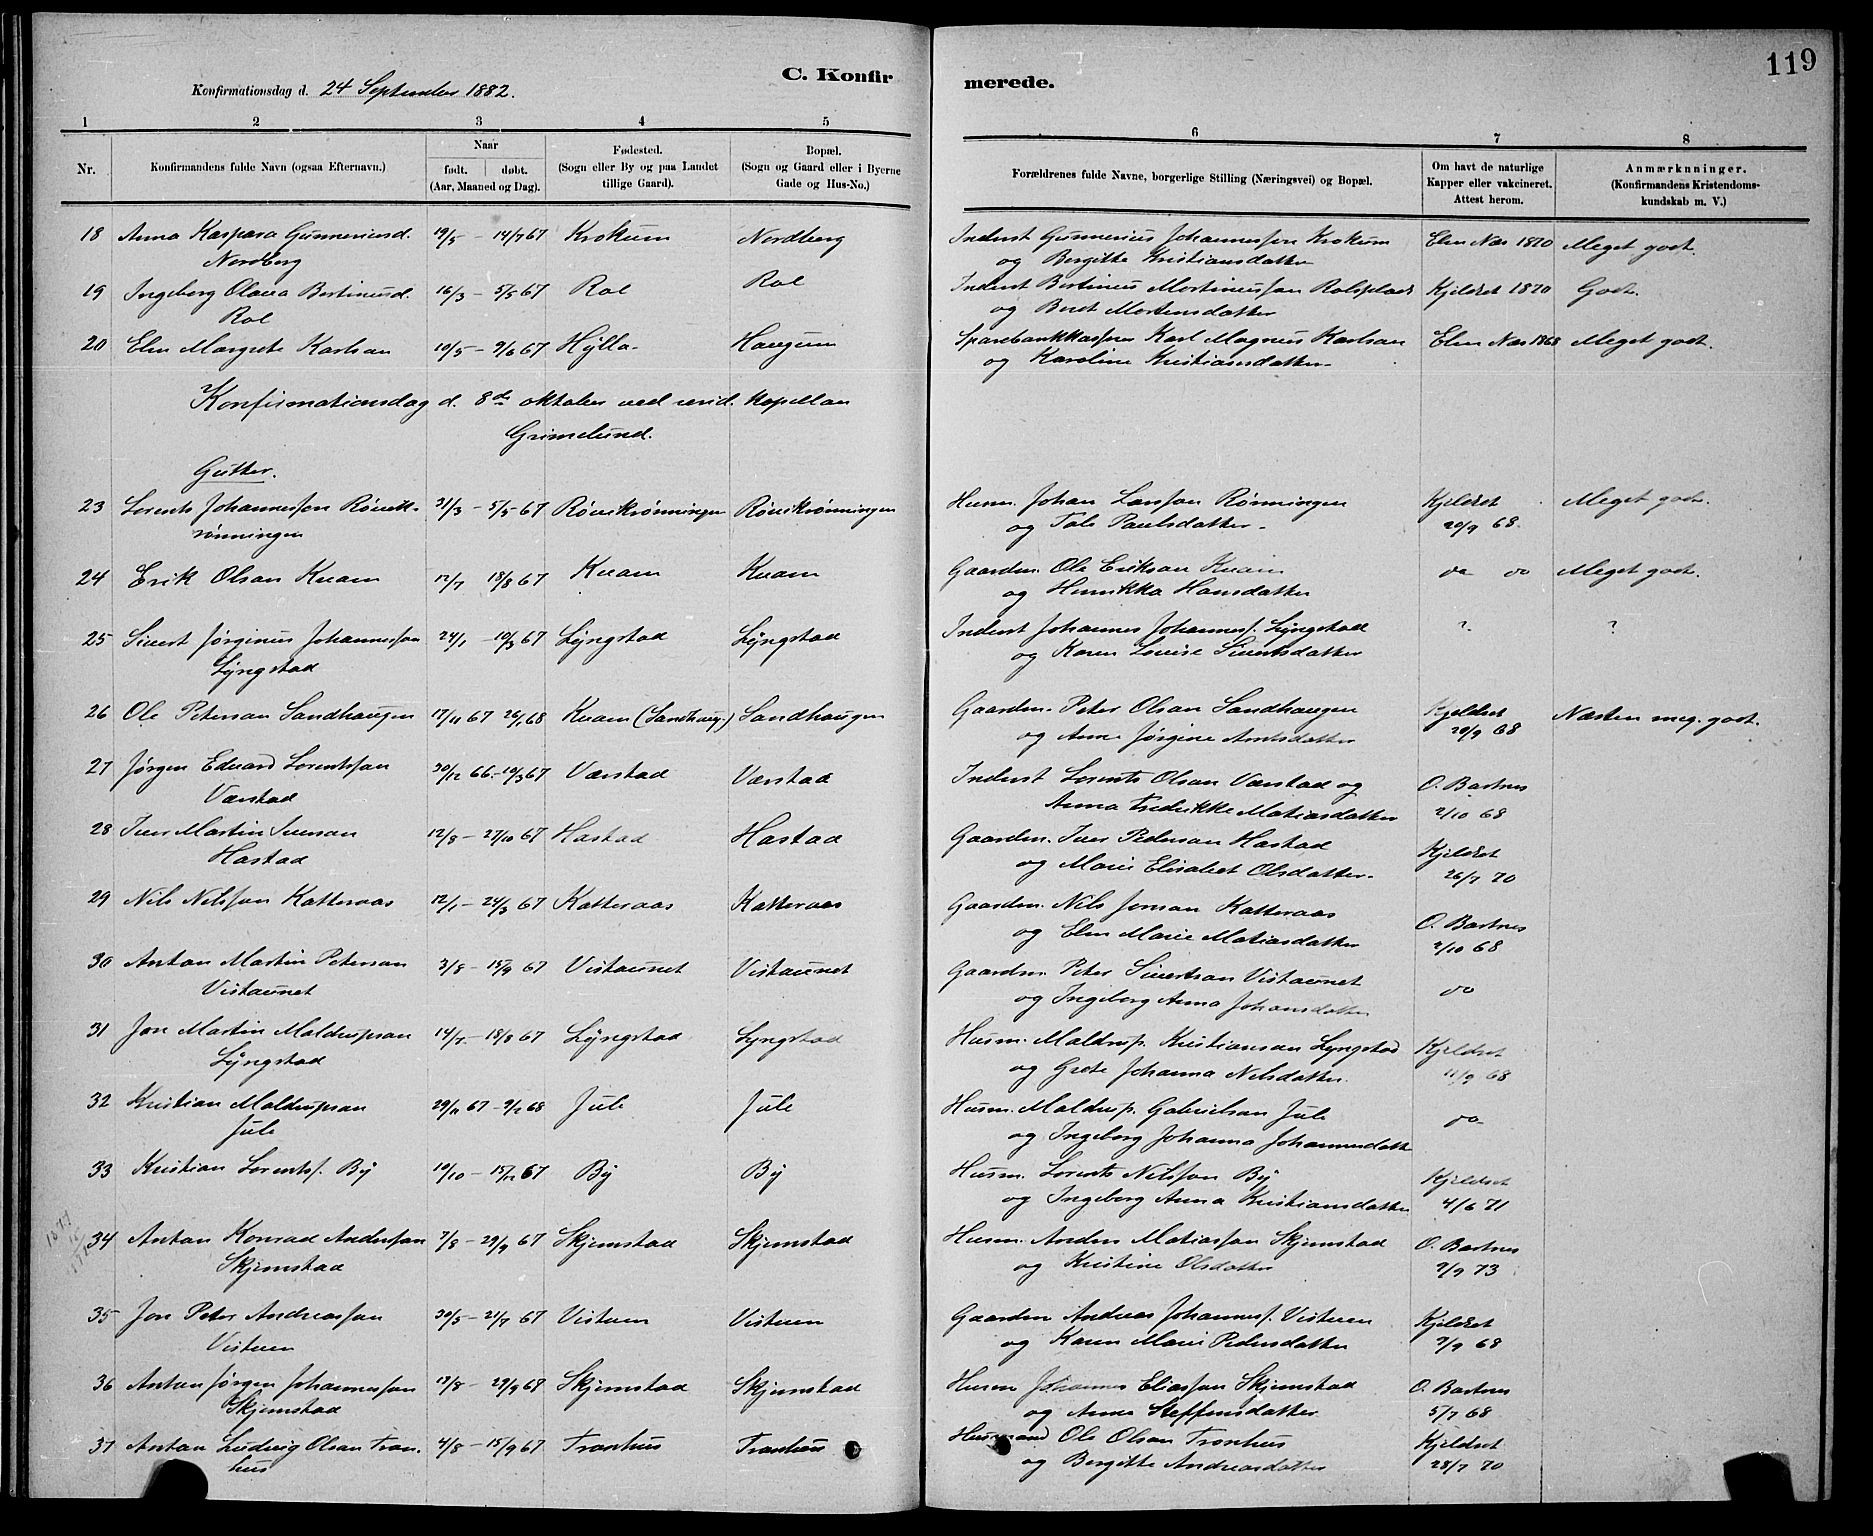 119
C. Konfirmerede.
Konfirmationsdag d. 24 September 1882.
1 2 3 4 5 6 7 8
Nr. Konfirmandens fulde Navn (ogsaa Efternavn.) Naar født. døbt. (Aar, Maaned og Dag). Fødested. (Sogn eller By og paa Landet tillige Gaard). Bopæl. (Sogn og Gaard eller i Byerne Gade og Hus-No.) Forældrenes fulde Navne, borgerlige Stilling (Næringsvei) og Bopæl. Om havt de naturlige Kapper eller vakcineret. Attest herom. Anmærknninger. (Konfirmandens Kristendomskundskab m. V.)
18 Anna Kaspara Gunneriusd. 19/5 – 14/7 67 Krokum Nordberg Inderst Gunnerius Johannessen Krokum Elen Næs 1870 Meget godt.
Nordberg og Bergitte Kristiansdatter
19 Ingeborg Olava Bertinusd. 16/3 – 5/5 67 Rol Rol Inderst Bertinus Mortinussen Rolsplads Kjeldset 1870 Godt.
Rol og Beret Mortensdatter
20 Elen Margrete Karlsen 10/5 – 9/6 67 Hylla Haugum Sparebankkasserer Karl Magnus Karlsen Elen Næs 1868 Meget godt.
og Karoline Kristiansdatter
Konfirmationsdag d. 8de oktober ved resid. kapellan
Grimelund.
Gutter.
23 Lorents Johannessen Røvik- 31/3 – 5/5 67 Røvikrønningen Røvikrønningen Husm. Johan Larssen Rønningen Kjeldset Meget godt.
rønningen og Tale Paulsdatter 20/9 68
24 Erik Olsen Kvam 12/7 18/8 67 Kvam Kvam Gaardm. Ole Eriksen Kvam do do Meget godt.
og Henrikka Hansdatter
25 Sivert Jørginus Johannessen 24/1 – 10/3 67 Lyngstad Lyngstad Inderst Johannes Johanness. Lyngstad ? ?
Lyngstad og Karen Lovise Sivertsdatter
26 Ole Petersen Sandhaugen 17/11 67 26/1 68 Kvam (Sandhaug.) Sandhaugen Gaardm. Peter Olsen Sandhaugen Kjeldset Næsten meg. godt.
og Anne Jørgine Arntsdatter 20/9 68
27 Jørgen Edvard Lorentssen 30/12 66 – 10/3 67 Værstad Værstad Inderst Lorents Olsen Værstad og O. Bartnes
Værstad Anna Fredrikke Matiasdatter 2/10 68
28 Iver Martin Iversen 12/8 – 27/10 67 Hastad Hastad Gaardm. Iver Pedersen Hastad Kjeldset
Hastad og Marie Elisabet Olsdatter 26/7 70
29 Nils Nilssen Katteraas 12/1 – 24/3 67 Katteraas Katteraas Gaardm. Nils Jensen Katteraas O. Bartnes
og Elen Marie Matiasdatter 2/10 68
30 Anton Martin Petersen 3/8 – 15/9 67 Vistaunet Vistaunet Gaardm. Peter Sivertsen Vistaunet do
Vistaunet og Ingeborg Anna Johansdatter
31 Jon Martin Maldrupsen 14/7 – 18/8 67 Lyngstad Lyngstad Husm. Maldrup. Kristiansen Lyngstad Kjeldset
Lyngstad og Grete Johanna Nilsdatter 11/9 68
32 Kristian Maldrupsen 29/11 67 – 9/2 68 Jule Jule Husm. Maldrup. Gabrielsen Jule do
Jule og Ingeborg Johanna Johannesdatter
33 Kristian Lorentss. By 10/10 – 15/12 67 By By Husm. Lorents Nilssen By Kjeldset
og Ingeborg Anna Kristiansdatter 4/6 71
34 Anton Konrad Anderssen 7/8 – 29/9 67 Skjemstad Skjemstad Husm. Anders Matiassen Skjemstad O. Bartnes
Skjemstad og Kristine Olsdatter 9/9 73
35 Jon Peter Andreassen 30/5 – 21/7 67 Vistven Vistven Gaardm Andreas Johanness. Vistven Kjeldset
Vistven og Karen Marie Pedersdatter 9/9 68
36 Anton Jørgen Johannessen 13/8 – 29/9 68 Skjemstad Skjemstad Husm Johannes Eliassen Skjemstad O. Bartnes
Skjemstad og Anne Steffensdatter 5/7 68
37 Anton Ludvig Olsen Tron- 4/8 – 15/9 67 Tronhus Tronhus Husmand Ole Olsen Tronhus Kjeldset
hus og Bergitte Andreasdatter 28/7 70